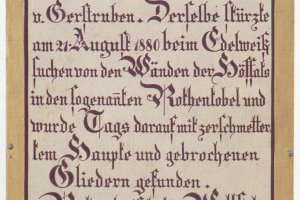 v. Gerstruben. Derselbe stürzte
am 21. August 1880 beim Edelweiß
suchen von den Wänden der Höffats
in den sogenanten Rothentobel und
wurde Tags darauf mit zerschmetter
tem Haupte und gebrochenen
Gliedern gefunden.